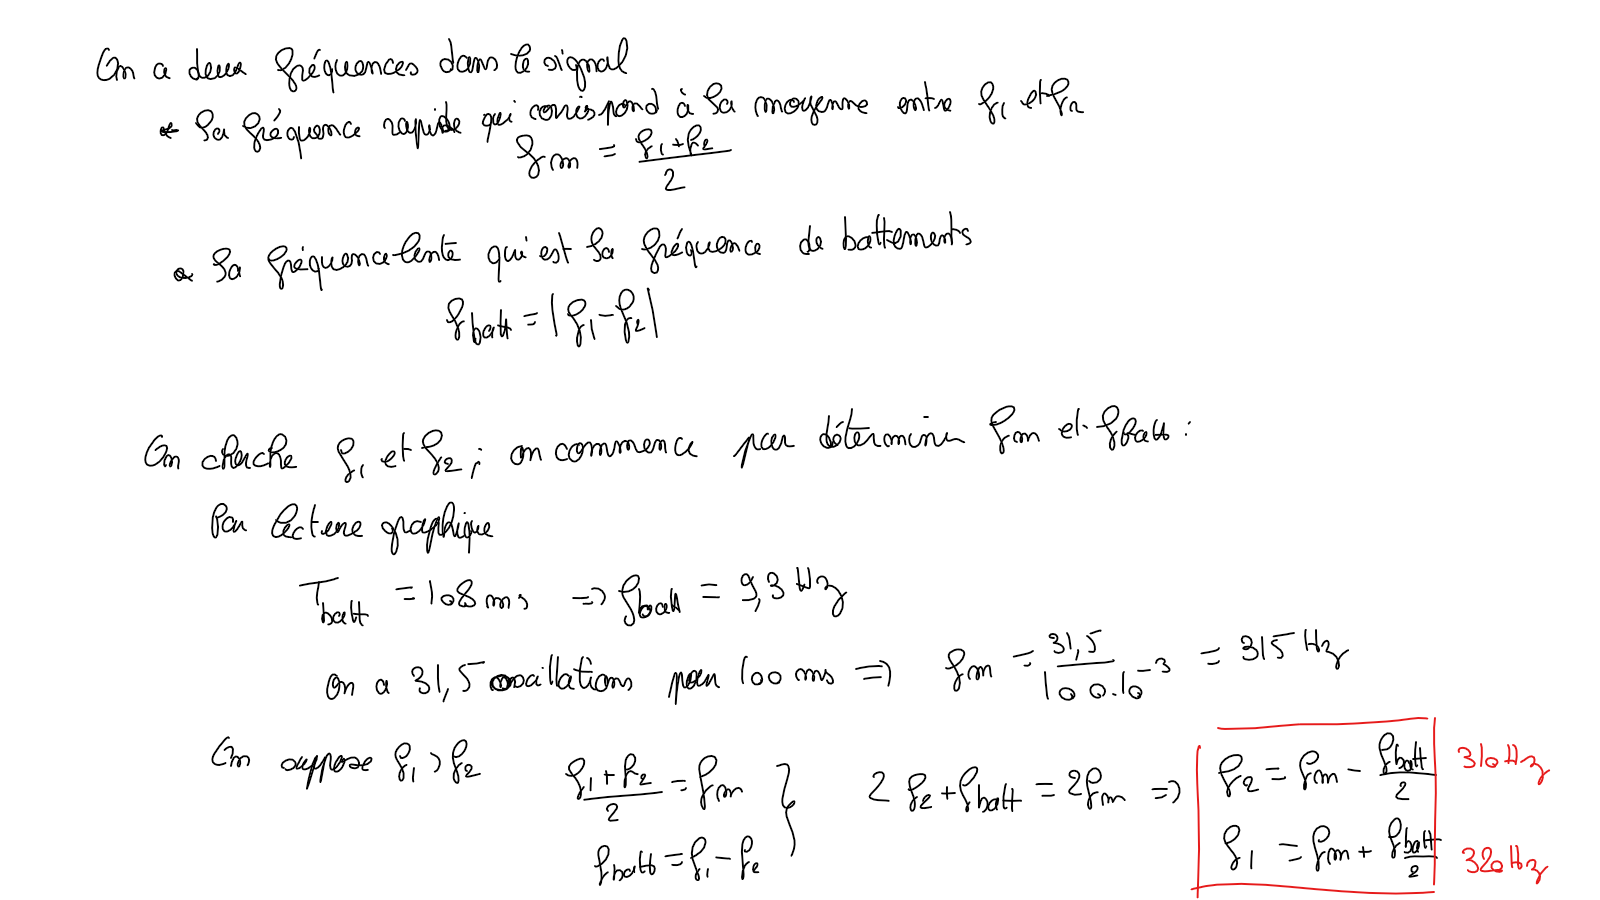 On a deux fréquences dans le signal
* la fréquence rapide qui correspond à la moyenne entre f1 et f2
fm = (f1+f2)/2
* la fréquence lente qui est la fréquence de battements
fbatt = |f1-f2|
On cherche f1 et f2 ; on commence par déterminer fm et fbatt :
Par lecture graphique
Tbatt = 108 ms => fbatt = 9,3 Hz
on a 31,5 oscillations pour 100 ms => fm = 31,5/(100.10^-3) = 315 Hz
On suppose f1 > f2
(f1+f2)/2 = fm
fbatt = f1 - f2
} 2 f2 + fbatt = 2fm =>
f2 = fm - fbatt/2 310 Hz
f1 = fm + fbatt/2 320 Hz